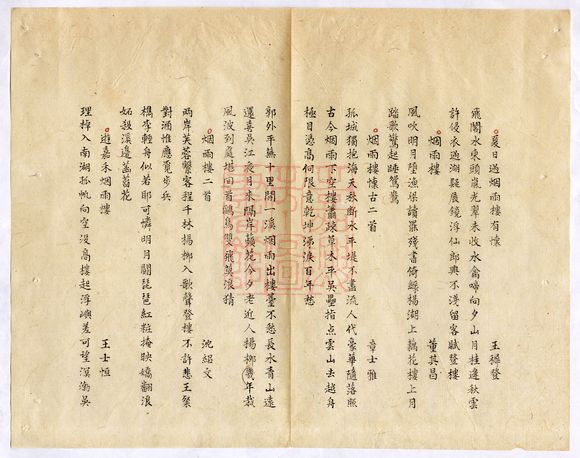 夏日過烟雨樓有懷　王穉登
飛閣水東頭嵐光翠未收水禽啼向夕山月挂逢秋雲
許侵衣過湖疑展鏡浮仙郎興不淺留客賦登樓
烟雨樓　董其昌
風吹明月墮漁磯讀罷殘書倚綠楊湖上藕花樓上月
踏歌驚起睡鴛鴦
烟雨樓懷古二首　章士雅
孤城獨抱海天秋斷水平堤不盡流人代豪華隨落照
古今烟雨下空樓蕭疎草木平吳壘指點雲山去越舟
極目憑高何限意乾坤涕淚百年愁
郭外平蕪十里開一溪烟雨出樓臺不愁長水青山遠
還喜吳江夜月來隔岸蘋花今夕老近人楊柳幾年栽
風波到處堪回首鷗鳥雙飛莫浪猜
烟雨樓二首　沈紹文
兩岸芙蓉繫客程千林楊柳入歌聲登樓不許悲王粲
對酒惟應覓步兵
檇李輕舟似若耶可憐明月鬭琵琶紅粧掩映嬌翻浪
妬殺溪邊菡萏花
遊嘉禾烟雨樓　王士恒
理棹入南湖孤帆向空沒高樓起浮嶼差可望溟渤吳